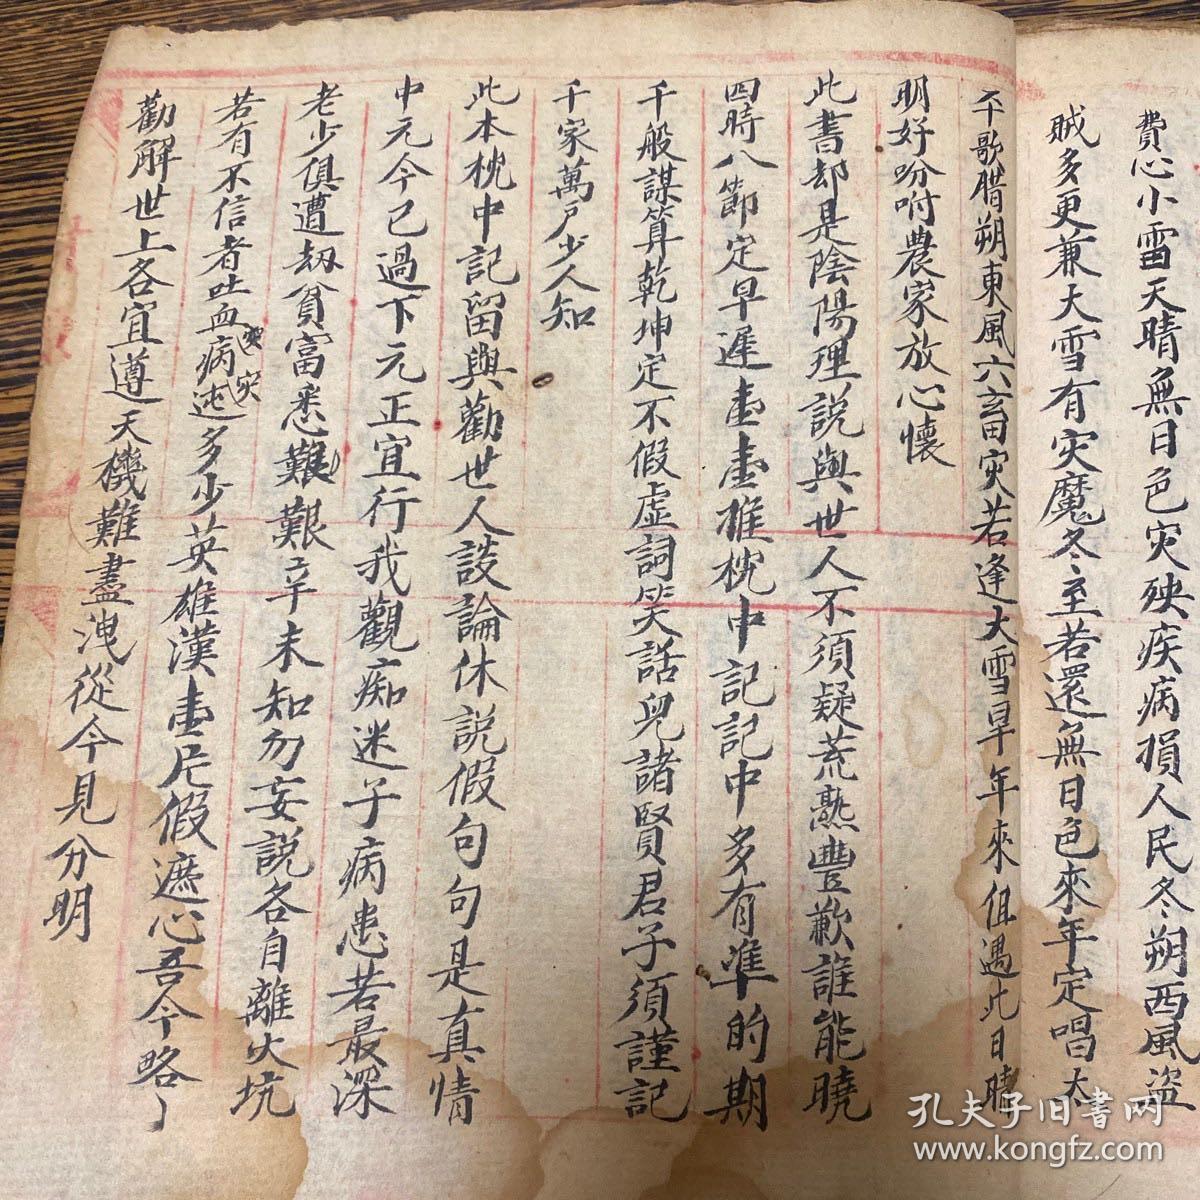 費心小雪天晴無日色灾殃疾病損人民冬朔西風盜
賊多更兼大雪有灾魔冬至若還無日色來年定唱太
平歌腊朔東風六畜灾若逢大雪旱年來但遇此日晴
明好吩咐農家放心懷
此書却是陰陽理說與世人不須疑荒熟豐歉誰能曉
四時八節定早遲推枕中記記中多有準的期
千般謀算乾坤定不假虛詞笑話兒諸賢君子須謹記
千家萬戶少人知
此本枕中記留與勸世人談論休說假句句是真情
中元今已過下元正宜行我觀痴迷子病患若最深
老少俱遭劫貧富悉艱艱辛未知勿妄說各自離火坑
若有不信者吐血病迍多少英雄漢片假遮心吾今略
灾
勸解世上各宜遵天機難盡洩從今見分明
孔夫子旧书网
www.kongfz.com